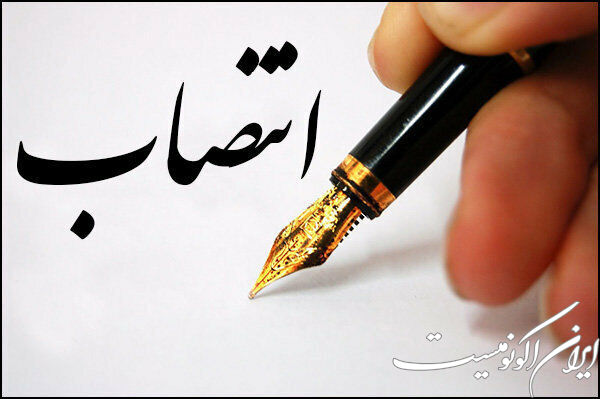 انتصاب
ایران اکونومیست